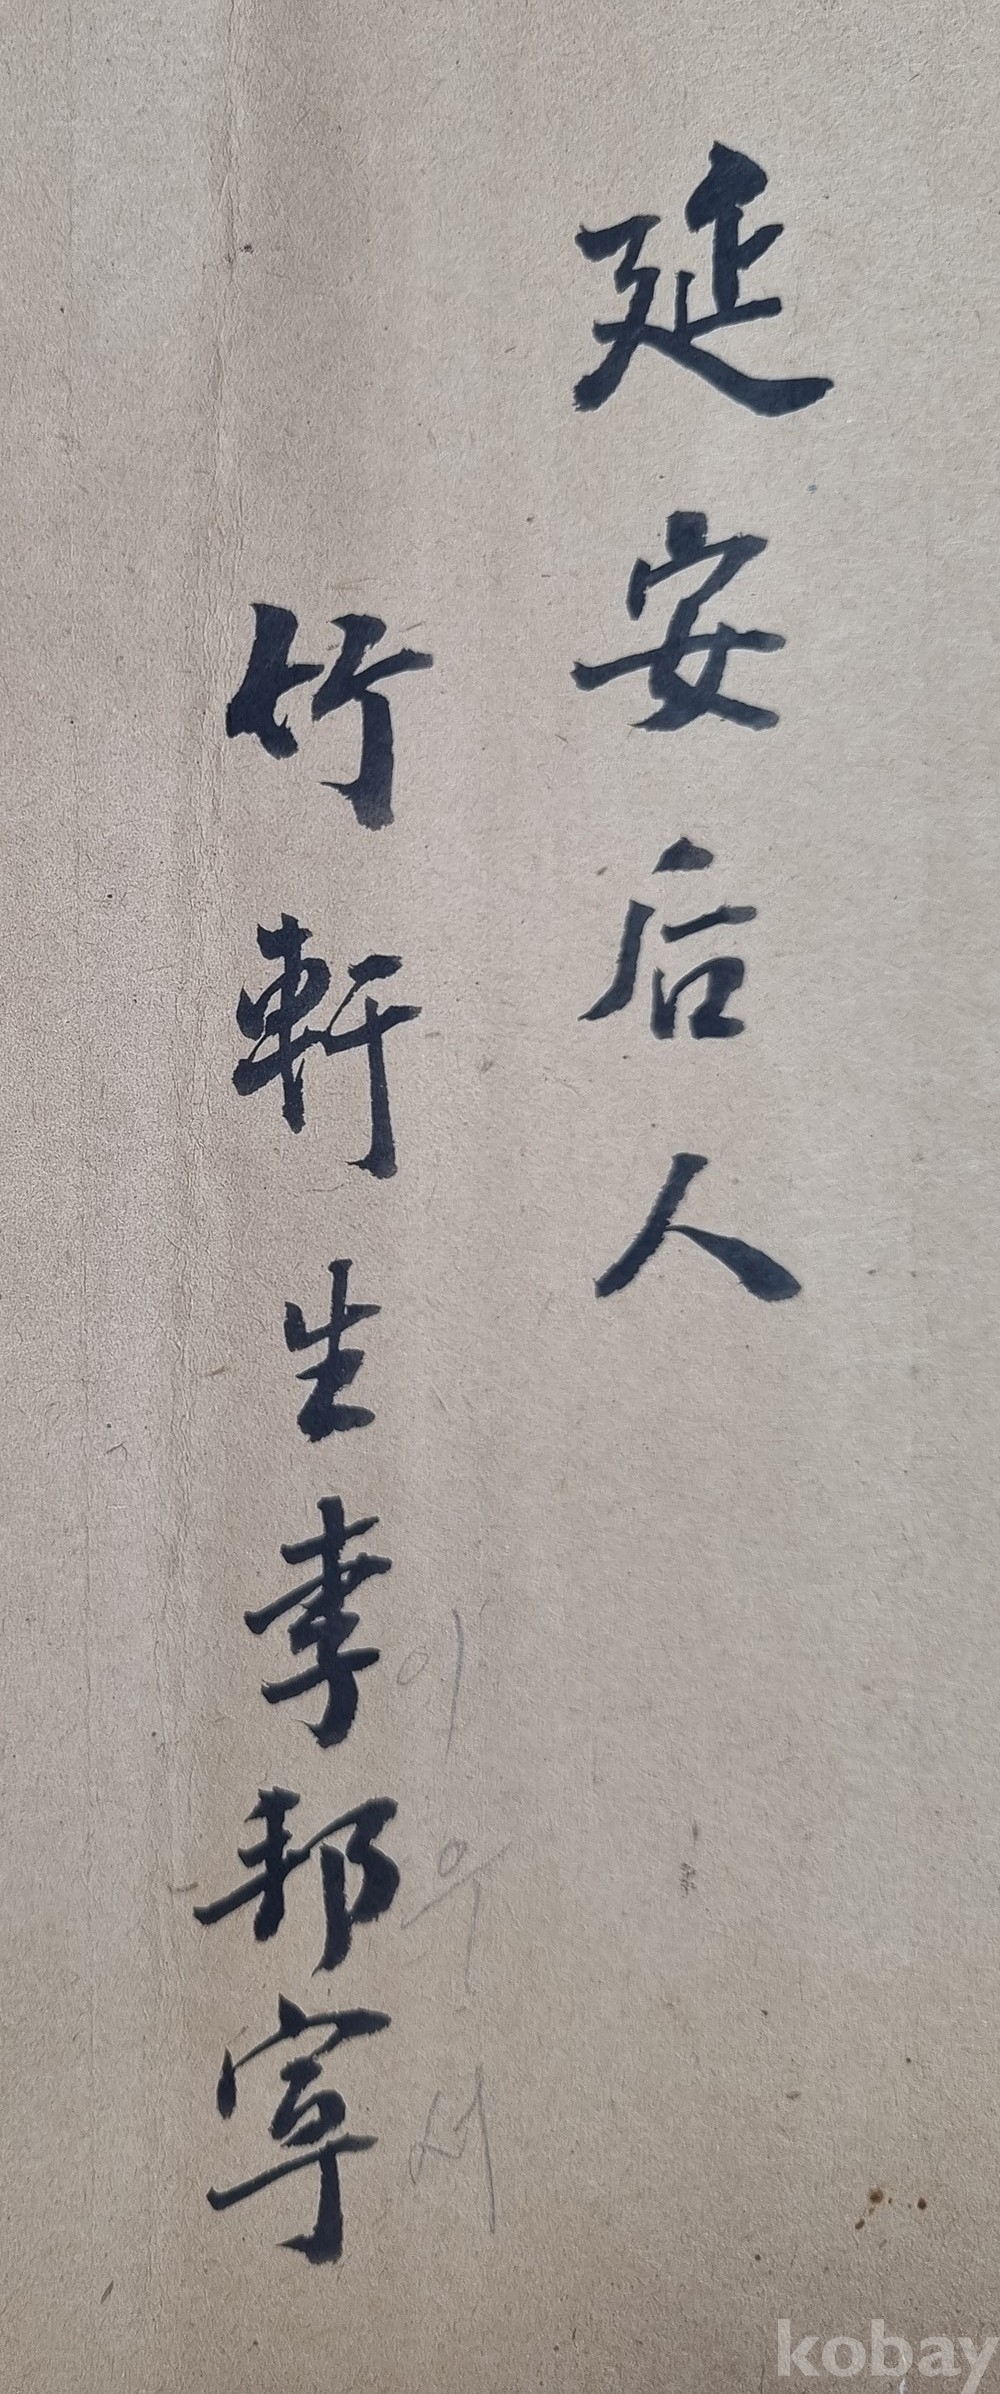 延安后人
竹軒生李邦寧
이
우
서
kobay